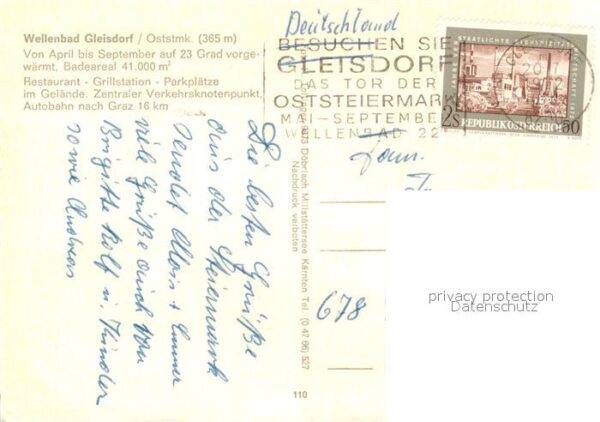 Wellenbad Gleisdorf / Oststmk. (365 m)
Von April bis September auf 23 Grad vorge-
wärmt, Badeareal 41.000 m²
Restaurant - Grillstation - Parkplätze
im Gelände. Zentraler Verkehrsknotenpunkt,
Autobahn nach Graz 16 km
Deutschland
BESUCHEN SIE
GLEISDORF
DAS TOR DER
OSTSTEIERMARK
MAI-SEPTEMBER
WELLENBAD 22°
2S
REPUBLIK ÖSTERREICH
50
Fam.
Die besten Grüße
aus der Steiermark
sendet Alois +
viele Grüße auch von
Brigitte Rolf u. Kinder
sowie Andreas
9873 Döbriach Millstättersee Kärnten Tel. (0 47 66) 527
Nachdruck verboten
678
110
privacy protection
Datenschutz